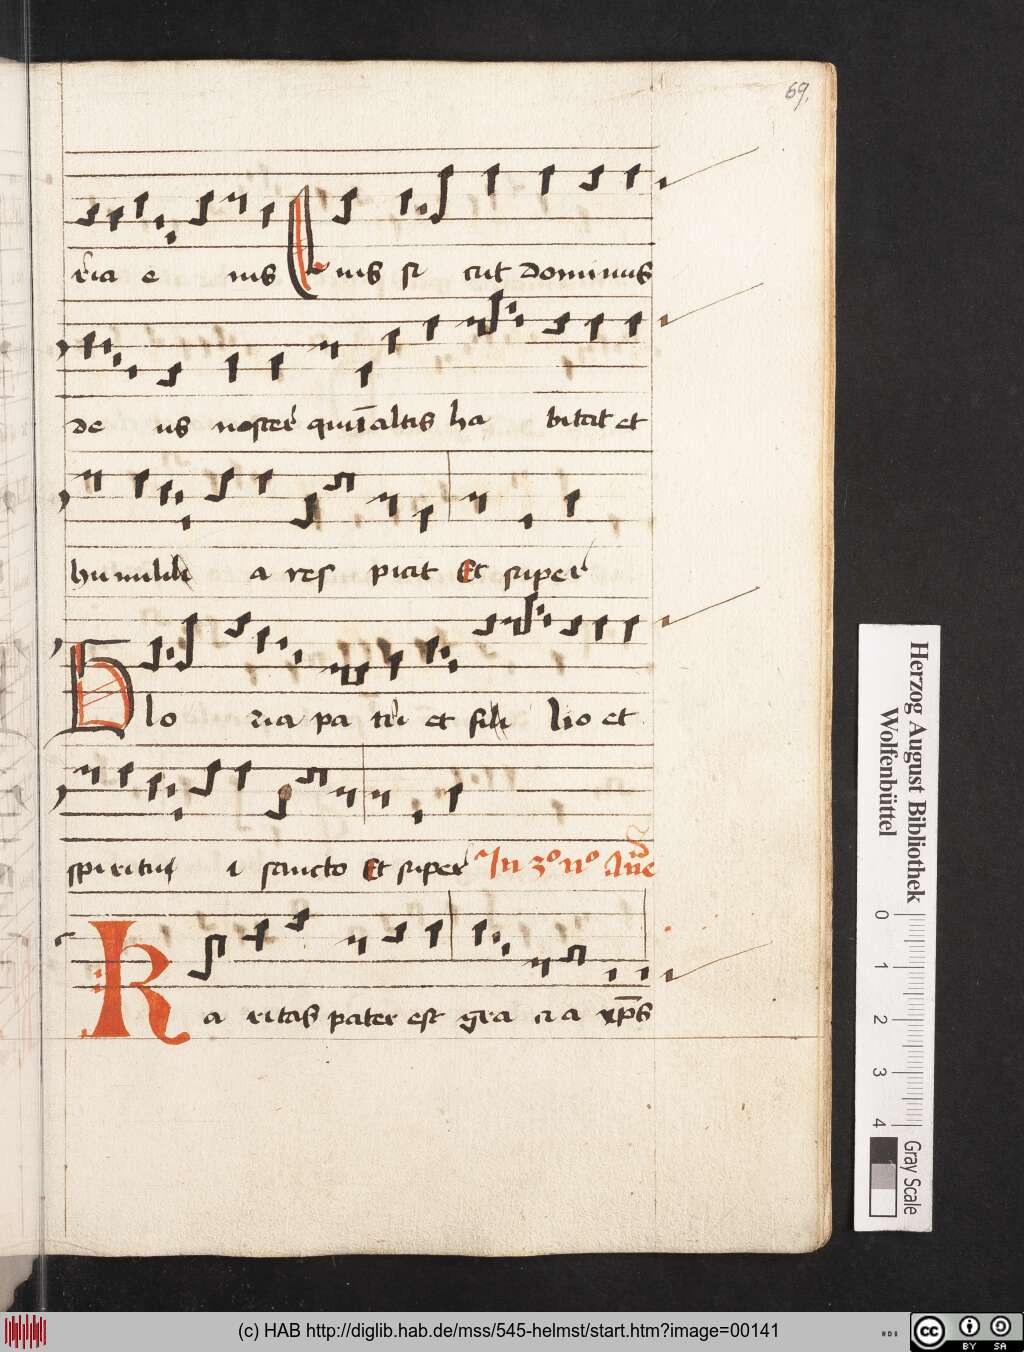 69.
ria e ius Quis sicut dominus
de us noster qui ī altis ha bitat et
humilia res picit Et super
Glo ria pa tri et fili lio et
spiritui i sancto Et super In 3o no Añe
Karitas pater est gra cia xp̄s
Herzog August Bibliothek
Wolfenbüttel
0
1
2
3
4
Gray Scale
(c) HAB http://diglib.hab.de/mss/545-helmst/start.htm?image=00141
cc
BY SA